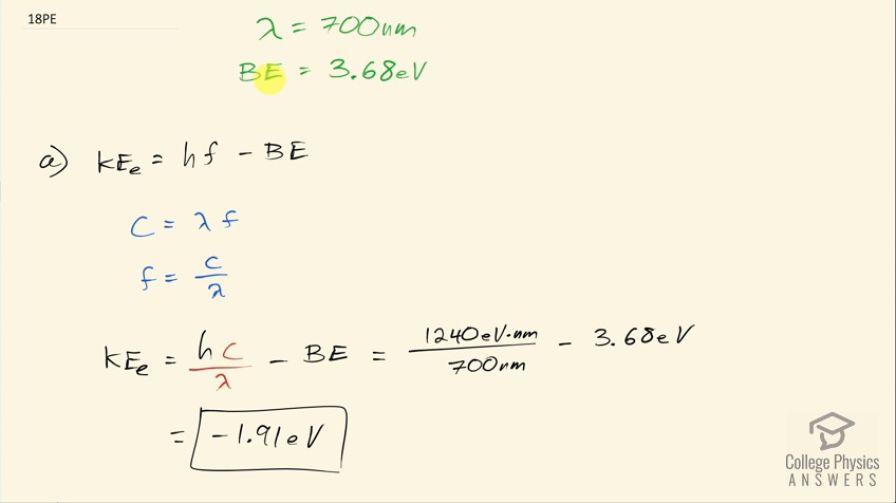 18PE
λ = 700nm
BE = 3.68eV
a) KEₑ = hf - BE
C = λ f
f = c/λ
KEₑ = hc/λ - BE = 1240eV·nm/700nm - 3.68eV
= -1.91eV
College Physics
ANSWERS